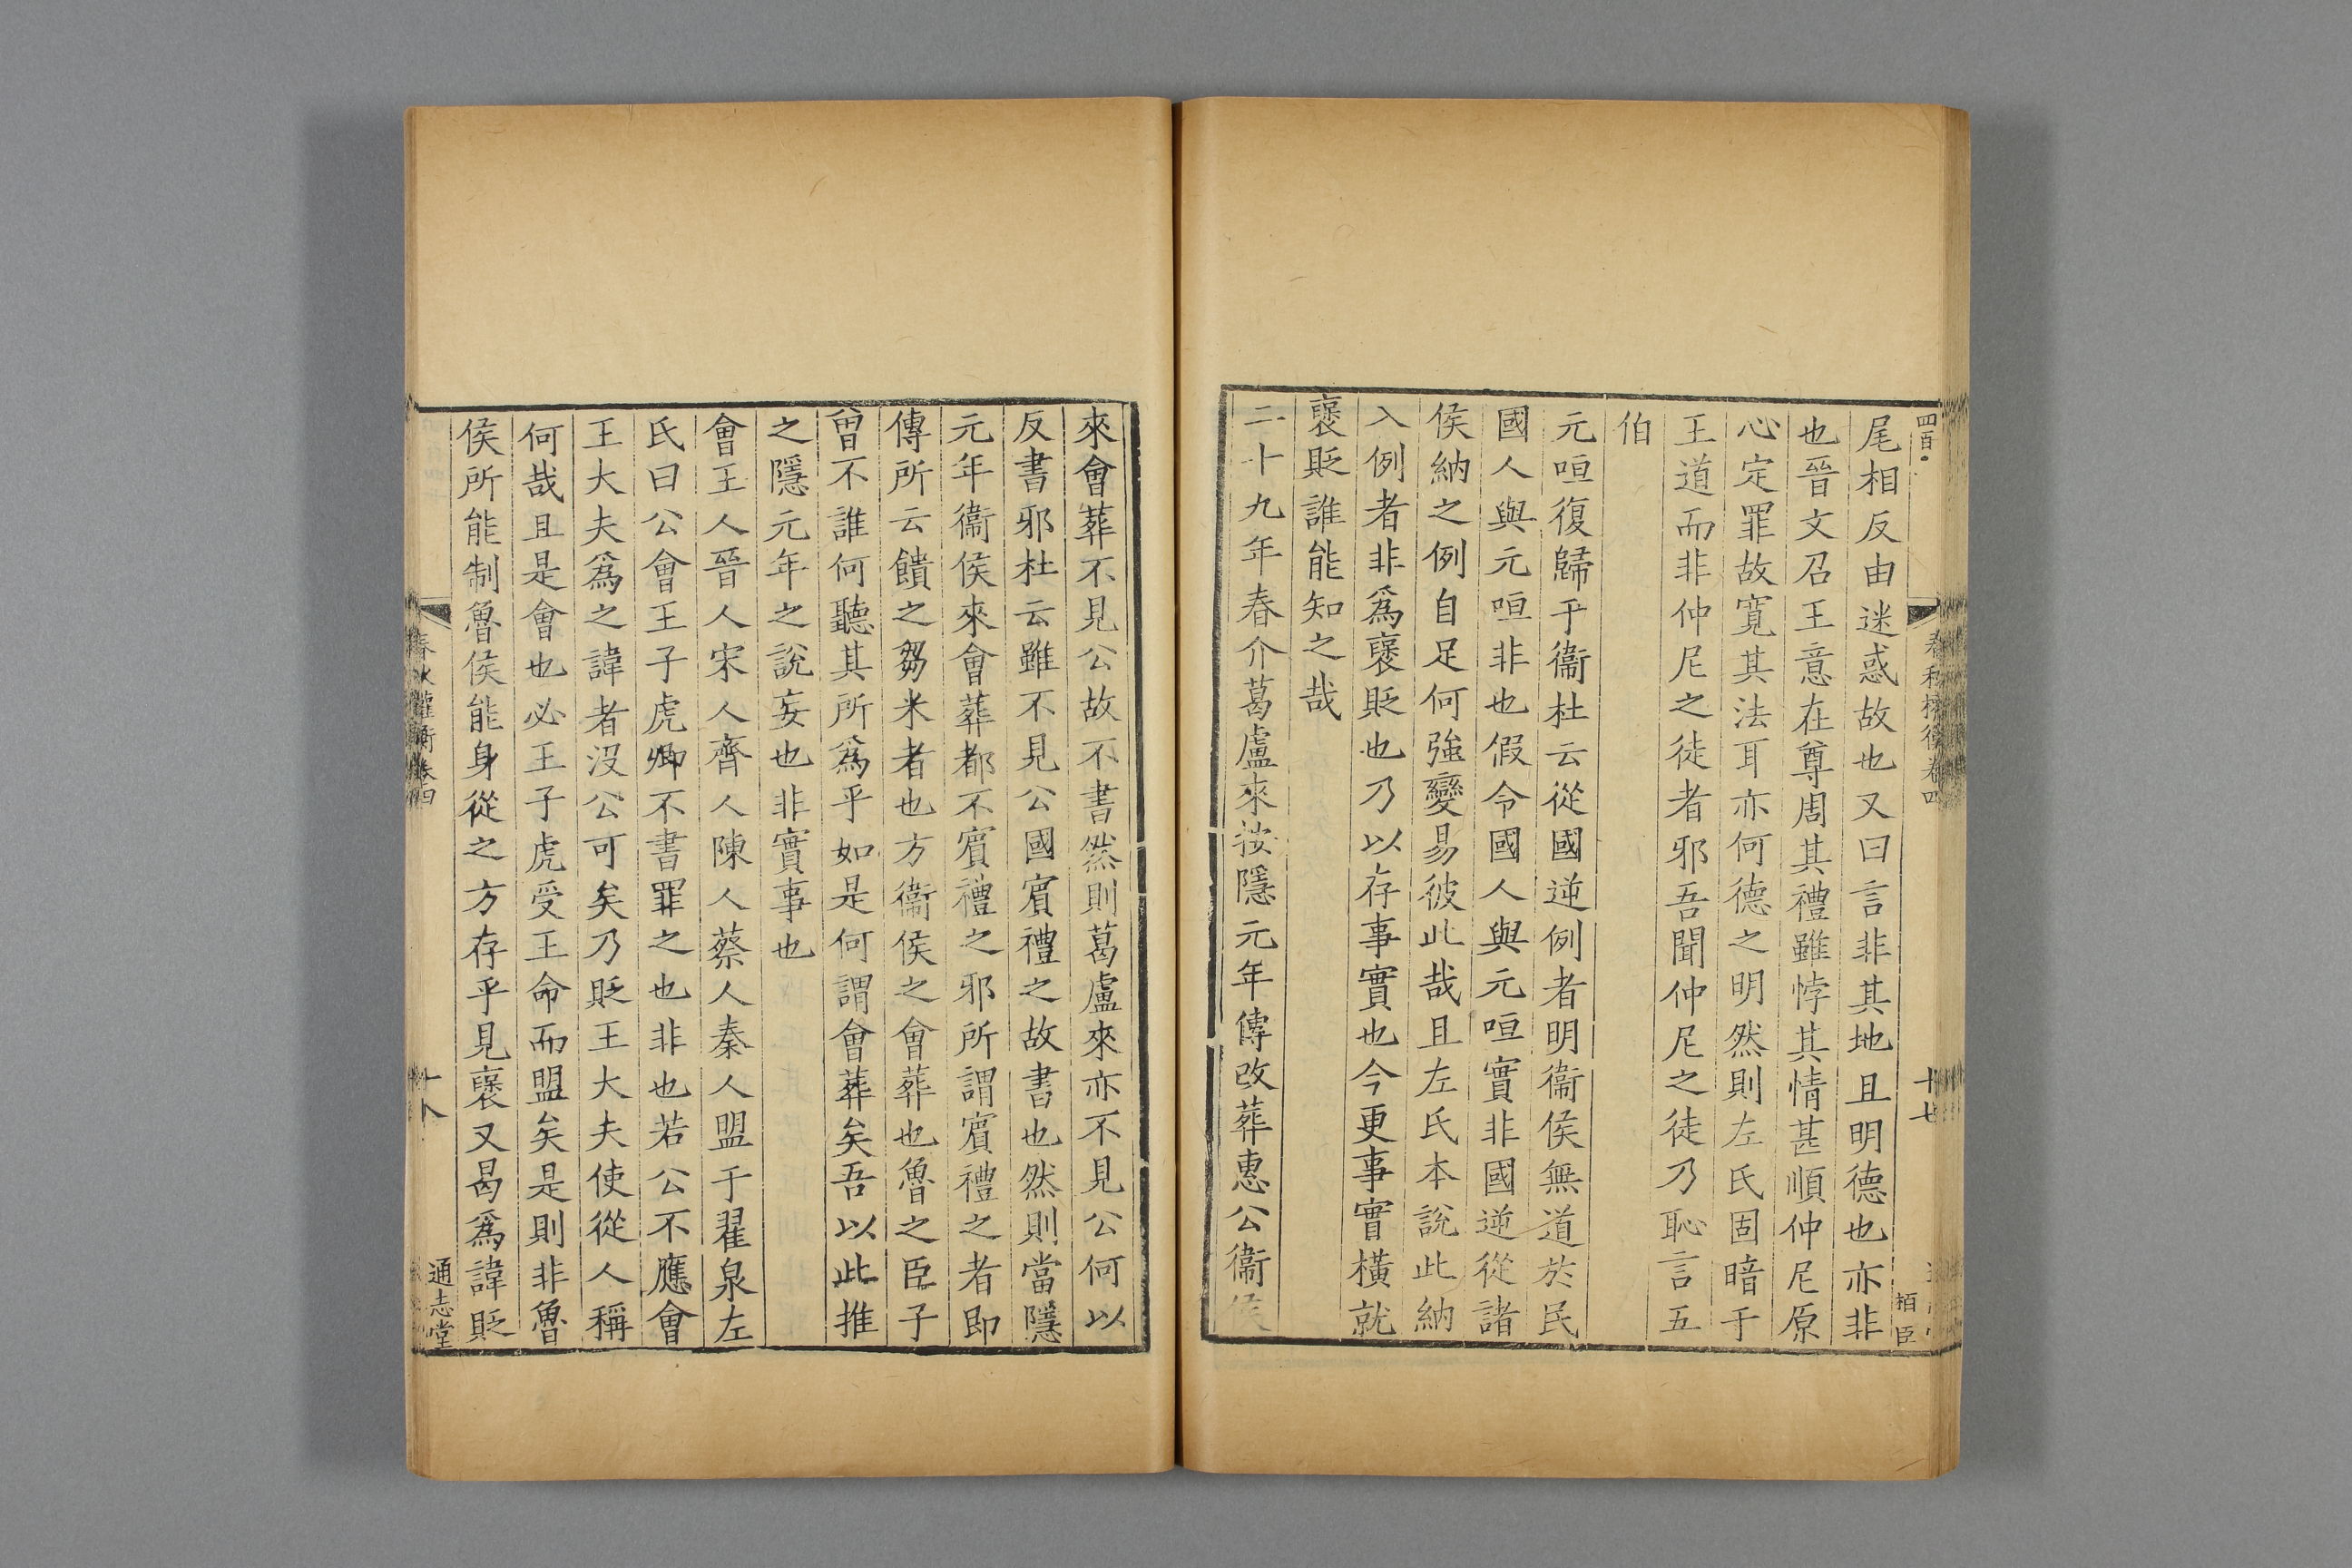 四百
春秋權衡卷四
十七
栢臣
尾相反由迷惑故也又曰言非其地且明德也亦非
也晉文召王意在尊周其禮雖悖其情甚順仲尼原
心定罪故寛其法耳亦何德之明然則左氏固暗于
王道而非仲尼之徒者邪吾聞仲尼之徒乃恥言五
伯
元咺復歸于衞杜云從國逆例者明衞侯無道於民
國人與元咺非也假令國人與元咺實非國逆從諸
侯納之例自足何強變易彼此哉且左氏本說此納
入例者非爲襃貶也乃以存事實也今更事實橫就
襃貶誰能知之哉
二十九年春介葛盧來按隱元年傳改葬惠公衞侯
來會葬不見公故不書然則葛盧來亦不見公何以
反書邪杜云雖不見公國賔禮之故書也然則當隱
元年衞侯來會葬都不賔禮之邪所謂賔禮之者即
傳所云饋之芻米者也方衞侯之會葬也魯之臣子
曾不誰何聽其所爲乎如是何謂會葬矣吾以此推
之隱元年之說妄也非實事也
會王人晉人宋人齊人陳人蔡人秦人盟于翟泉左
氏曰公會王子虎卿不書罪之也非也若公不應會
王大夫爲之諱者沒公可矣乃貶王大夫使從人稱
何哉且是會也必王子虎受王命而盟矣是則非魯
侯所能制魯侯能身從之方存乎見襃又曷爲諱貶
春秋權衡卷四
十八
通志堂